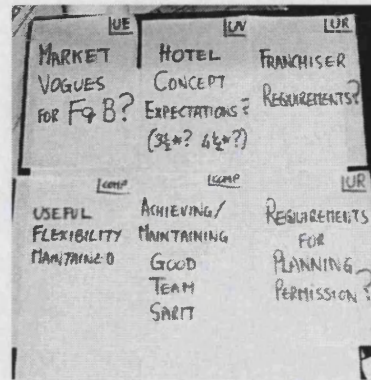 UE
MARKET
VOGUES
FOR F&B?
UV
HOTEL
CONCEPT
EXPECTATIONS?
(3½*? 4½*?)
UR
FRANCHISER
REQUIREMENTS?
COMP
USEFUL
FLEXIBILITY
MAINTAINED
COMP
ACHIEVING/
MAINTAINING
GOOD
TEAM
UR
REQUIREMENTS
FOR
PLANNING
PERMISSION?